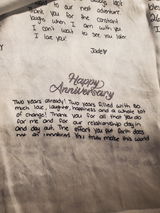 to our next adventure.
thank you for the constant
laughs when I am with you
I can't wait to see you later
I love you!
Jade
Happy
Anniversary
Two years already! Two years filled with so
much love, laughter, happiness and a whole lot
of change! Thank you for all that you do
for me and for our relationship day in
and day out. The effort you put forth does
not go unnoticed. You truly make this world